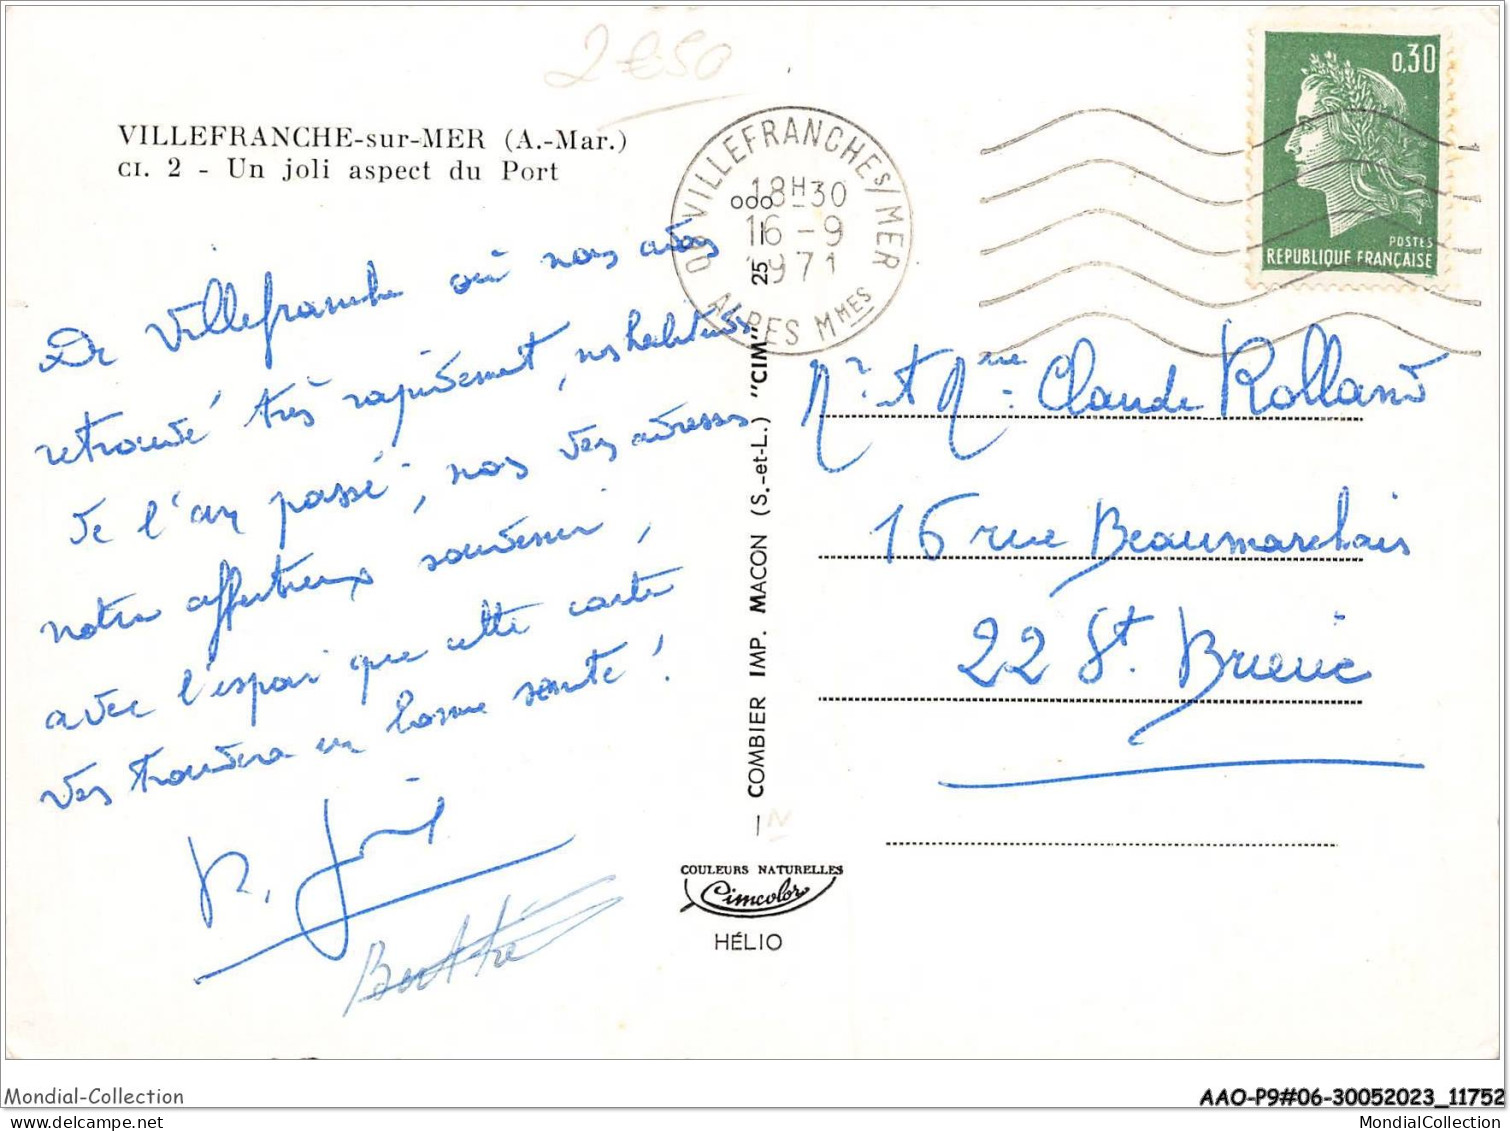 2€50
VILLEFRANCHE-sur-MER (A.-Mar.)
CI. 2 - Un joli aspect du Port
De Villefranche où nous avons
retrouvé très rapidement, nos habitudes
de l'an passé, nous vous adressons
notre affectueux souvenir,
avec l'espoir que cette carte
vous trouvera en bonne santé !
R.
06 VILLEFRANCHE S/MER
18H30
16-9
1971
ALPES MMES
0,30
POSTES
REPUBLIQUE FRANÇAISE
Mr. et Mme Claude Rolland
16 rue Beaumarchais
22 St. Brieuc
COMBIER IMP. MACON (S.-et-L.) "CIM" 25
COULEURS NATURELLES
Cimcolor
HÉLIO
Mondial-Collection
AAO-P9#06-30052023_11752
MondialCollection.com